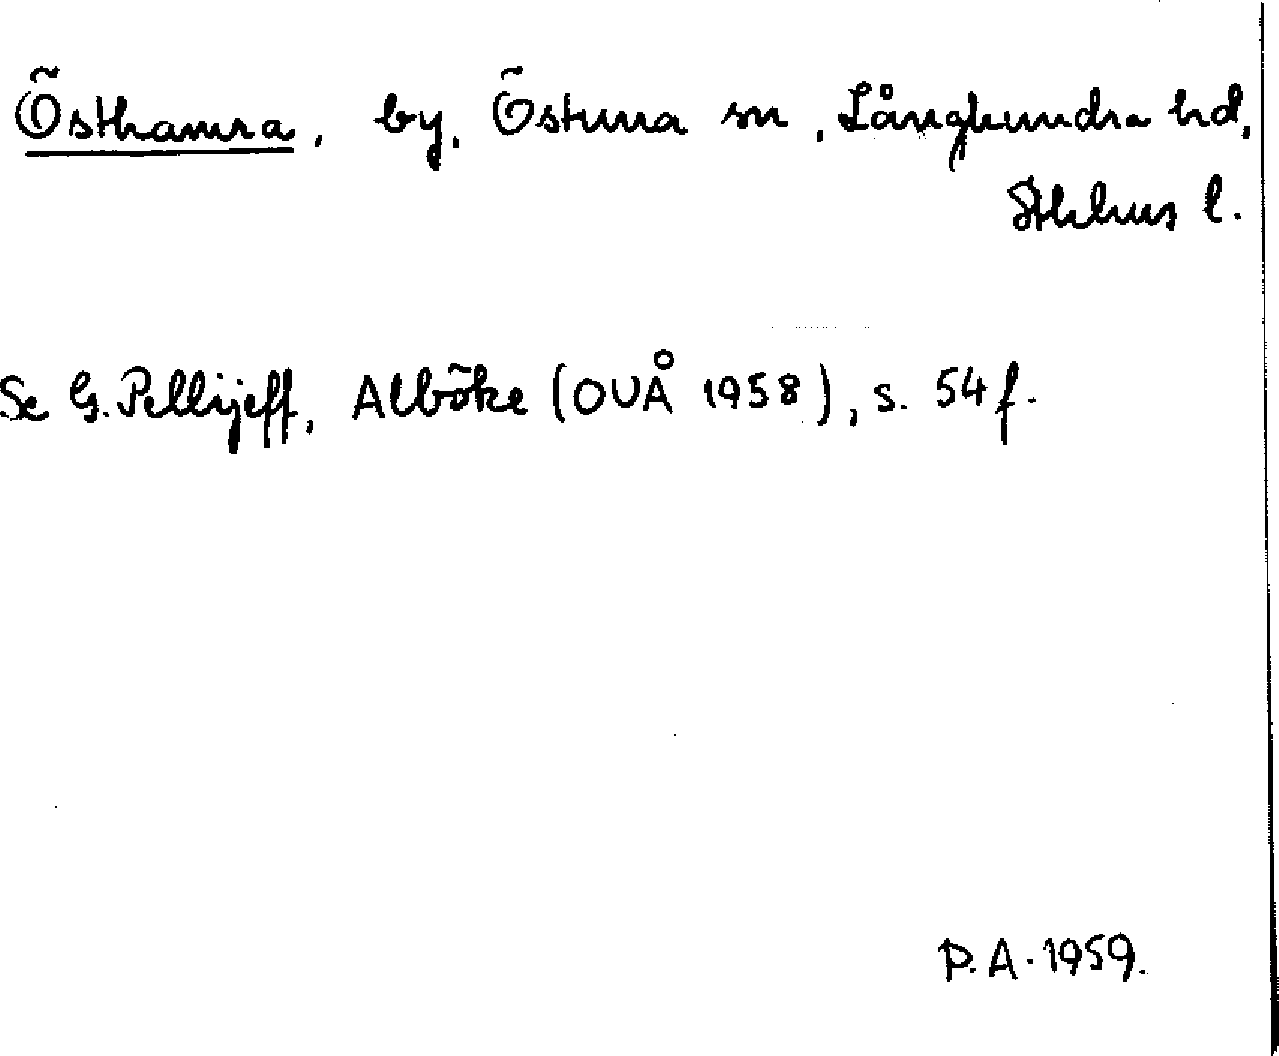 Östhamra, by, Östuna sn, Långhundra hd,
Sthlms l.
Se G. Pellijeff, Alböke (OUÅ 1958), s. 54 f.
P.A. 1959.